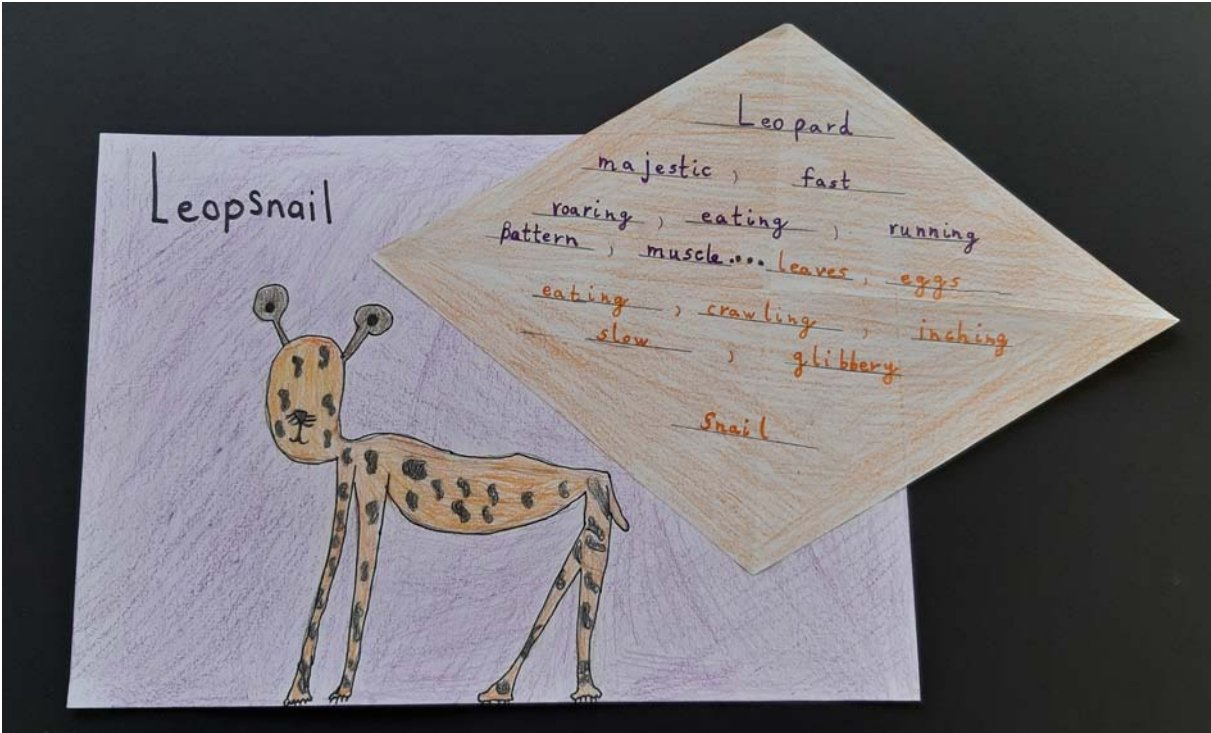 Leopsnail
Leopard
majestic, fast
roaring, eating, running
Pattern, muscle....leaves, eggs
eating, crawling, inching
slow, glibbery
Snail